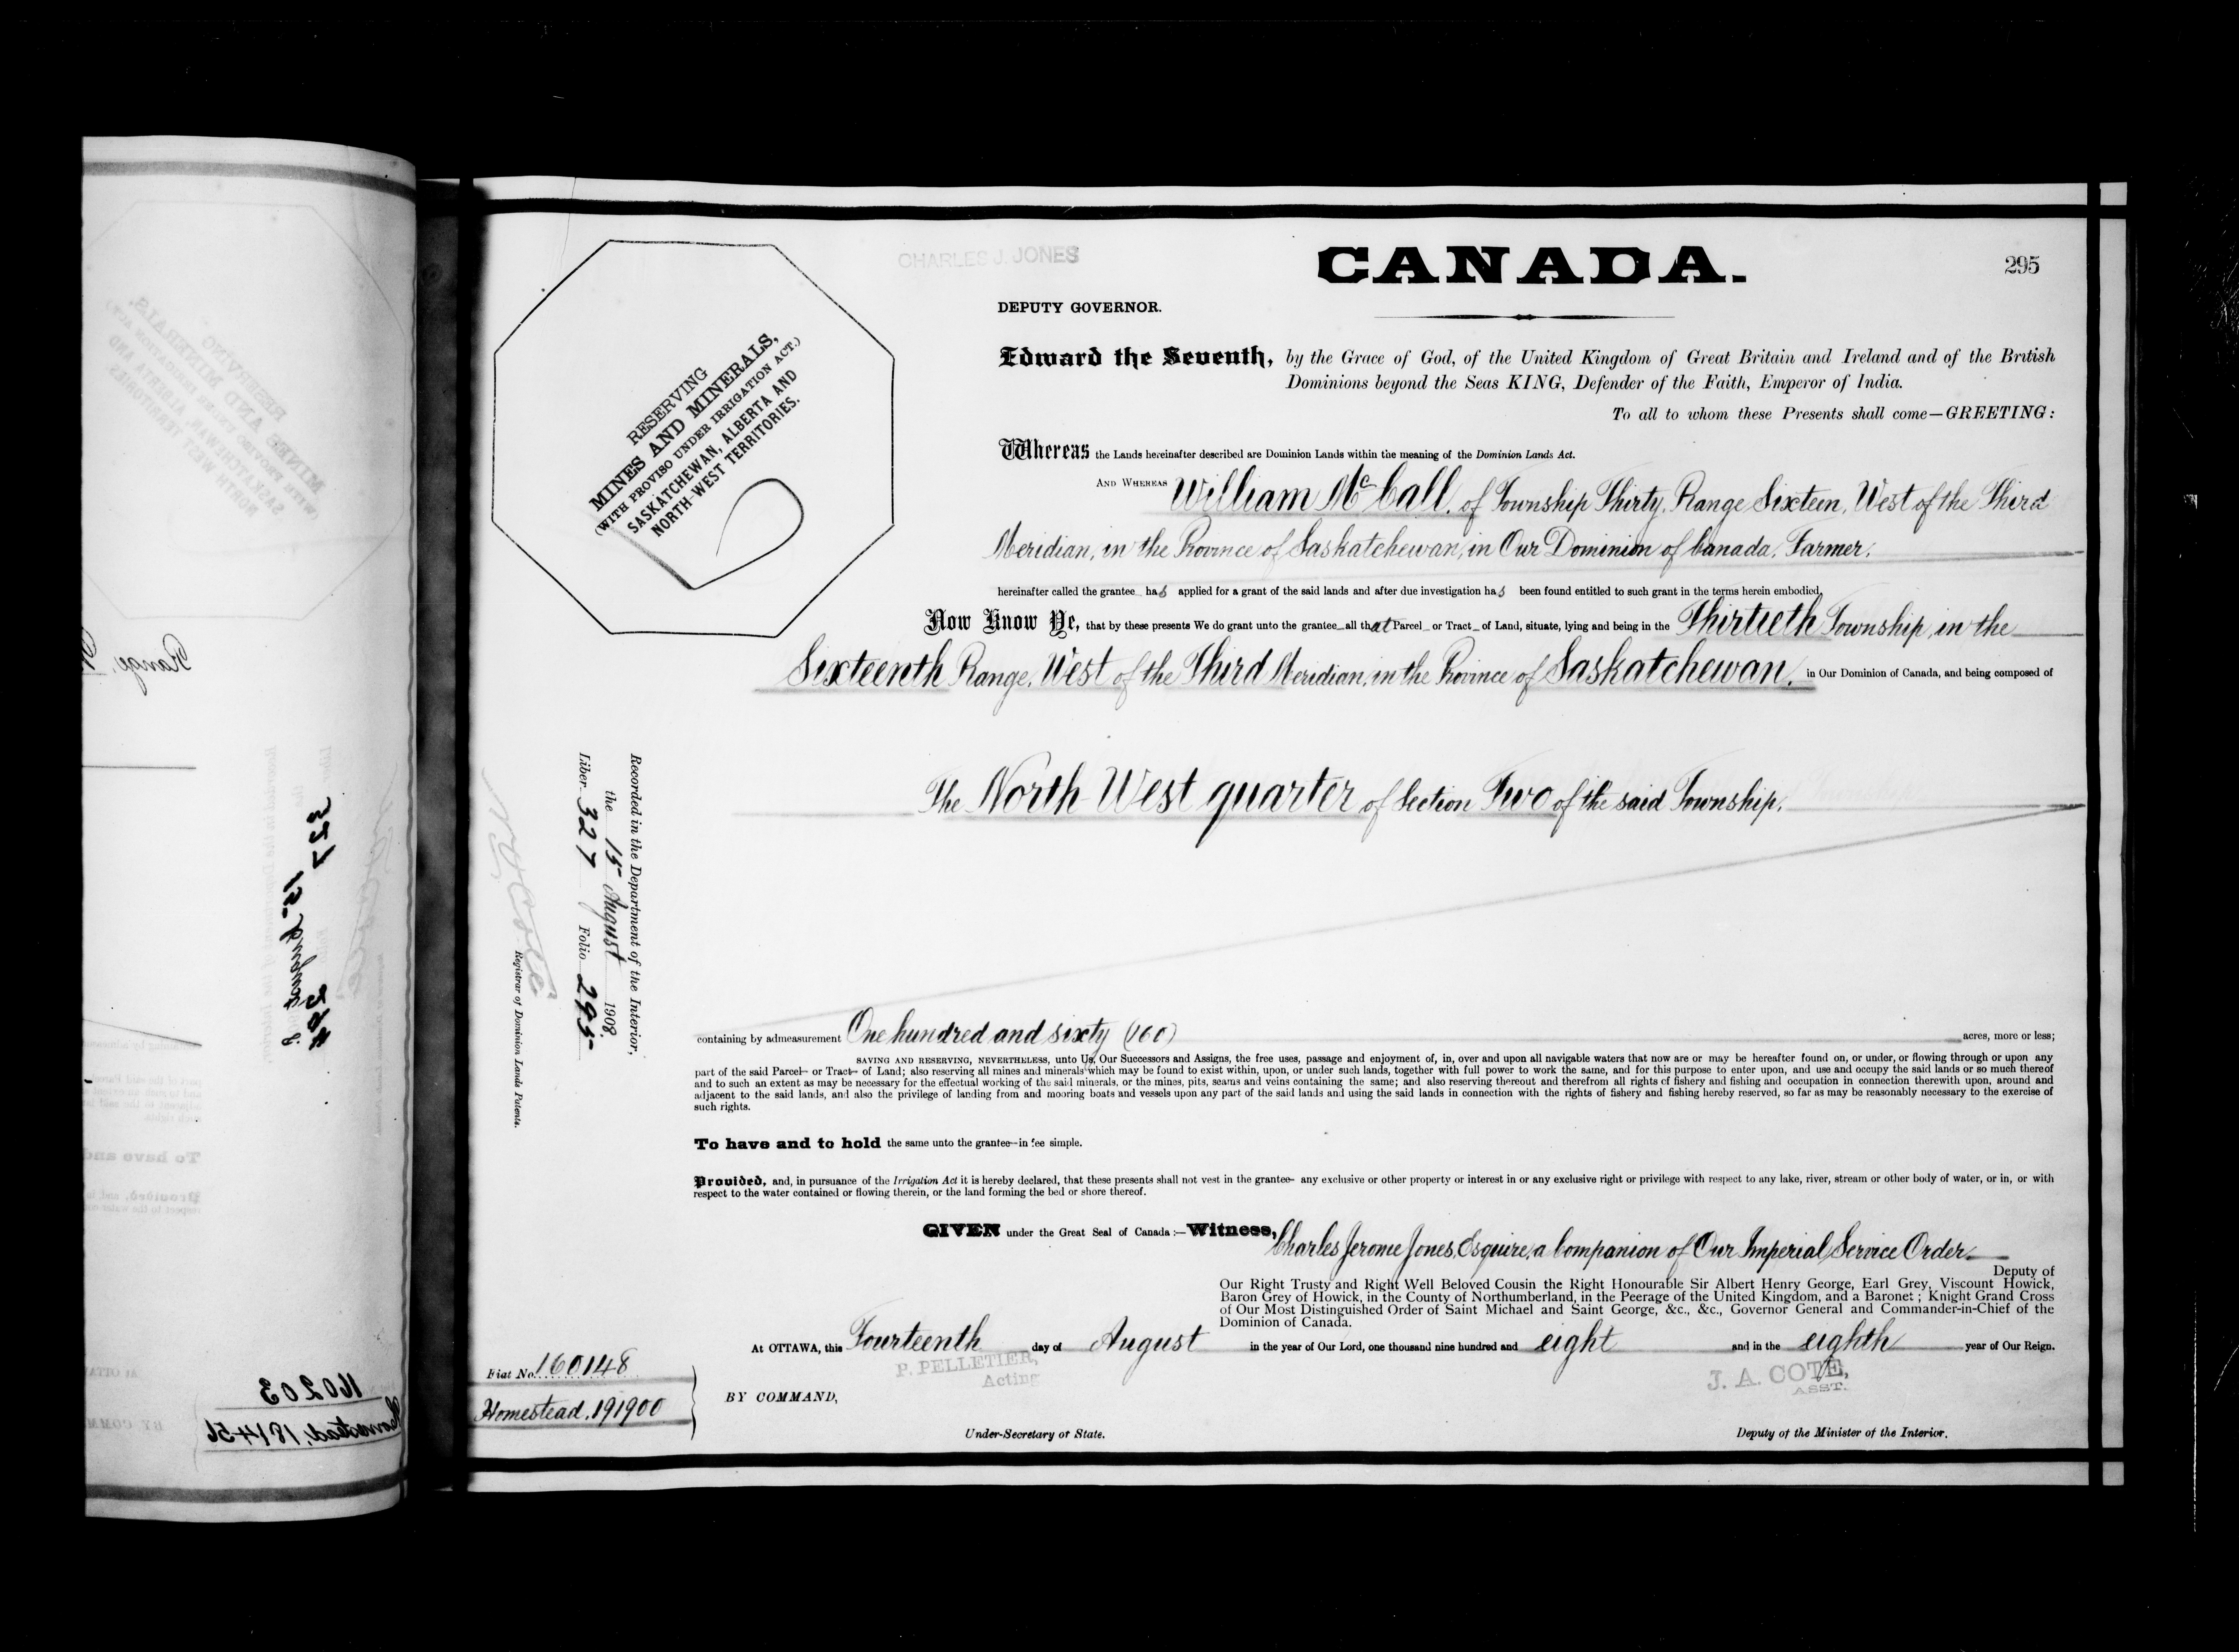 CHARLES J. JONES
CANADA.
295
DEPUTY GOVERNOR.
RESERVING
MINES AND MINERALS,
(WITH PROVISO UNDER IRRIGATION ACT.)
SASKATCHEWAN, ALBERTA AND
NORTH-WEST TERRITORIES.
Edward the Seventh, by the Grace of God, of the United Kingdom of Great Britain and Ireland and of the British
Dominions beyond the Seas KING, Defender of the Faith, Emperor of India.
To all to whom these Presents shall come—GREETING:
Whereas the Lands hereinafter described are Dominion Lands within the meaning of the Dominion Lands Act.
AND WHEREAS William McCall, of Township Thirty, Range Sixteen, West of the Third
Meridian, in the Province of Saskatchewan, in Our Dominion of Canada, Farmer,
hereinafter called the grantee has applied for a grant of the said lands and after due investigation has been found entitled to such grant in the terms herein embodied,
Now Know Ye, that by these presents We do grant unto the grantee all that Parcel or Tract of Land, situate, lying and being in the Thirtieth Township, in the
Sixteenth Range, West of the Third Meridian, in the Province of Saskatchewan, in Our Dominion of Canada, and being composed of
The North West quarter of Section Two of the said Township.
Recorded in the Department of the Interior,
the 15 August 1908,
Liber 327 Folio 295
Registrar of Dominion Lands Patents.
containing by admeasurement One hundred and sixty (160) acres, more or less;
SAVING AND RESERVING, NEVERTHELESS, unto Us, Our Successors and Assigns, the free uses, passage and enjoyment of, in, over and upon all navigable waters that now are or may be hereafter found on, or under, or flowing through or upon any
part of the said Parcel or Tract of Land; also reserving all mines and minerals which may be found to exist within, upon, or under such lands, together with full power to work the same, and for this purpose to enter upon, and use and occupy the said lands or so much thereof
and to such an extent as may be necessary for the effectual working of the said minerals, or the mines, pits, seams and veins containing the same; and also reserving thereout and therefrom all rights of fishery and fishing and occupation in connection therewith upon, around and
adjacent to the said lands, and also the privilege of landing from and mooring boats and vessels upon any part of the said lands and using the said lands in connection with the rights of fishery and fishing hereby reserved, so far as may be reasonably necessary to the exercise of
such rights.
To have and to hold the same unto the grantee in fee simple.
Provided, and, in pursuance of the Irrigation Act it is hereby declared, that these presents shall not vest in the grantee any exclusive or other property or interest in or any exclusive right or privilege with respect to any lake, river, stream or other body of water, or in, or with
respect to the water contained or flowing therein, or the land forming the bed or shore thereof.
GIVEN under the Great Seal of Canada:—Witness, Charles Jerome Jones, Esquire, a Companion of Our Imperial Service Order
Deputy of
Our Right Trusty and Right Well Beloved Cousin the Right Honourable Sir Albert Henry George, Earl Grey, Viscount Howick,
Baron Grey of Howick, in the County of Northumberland, in the Peerage of the United Kingdom, and a Baronet; Knight Grand Cross
of Our Most Distinguished Order of Saint Michael and Saint George, &c., &c., Governor General and Commander-in-Chief of the
Dominion of Canada.
At OTTAWA, this Fourteenth day of August in the year of Our Lord, one thousand nine hundred and eight and in the eighth year of Our Reign.
P. PELLETIER,
Acting
J. A. COTE,
ASST.
Fiat No. 160148
Homestead. 191900
BY COMMAND,
Under-Secretary of State.
Deputy of the Minister of the Interior.